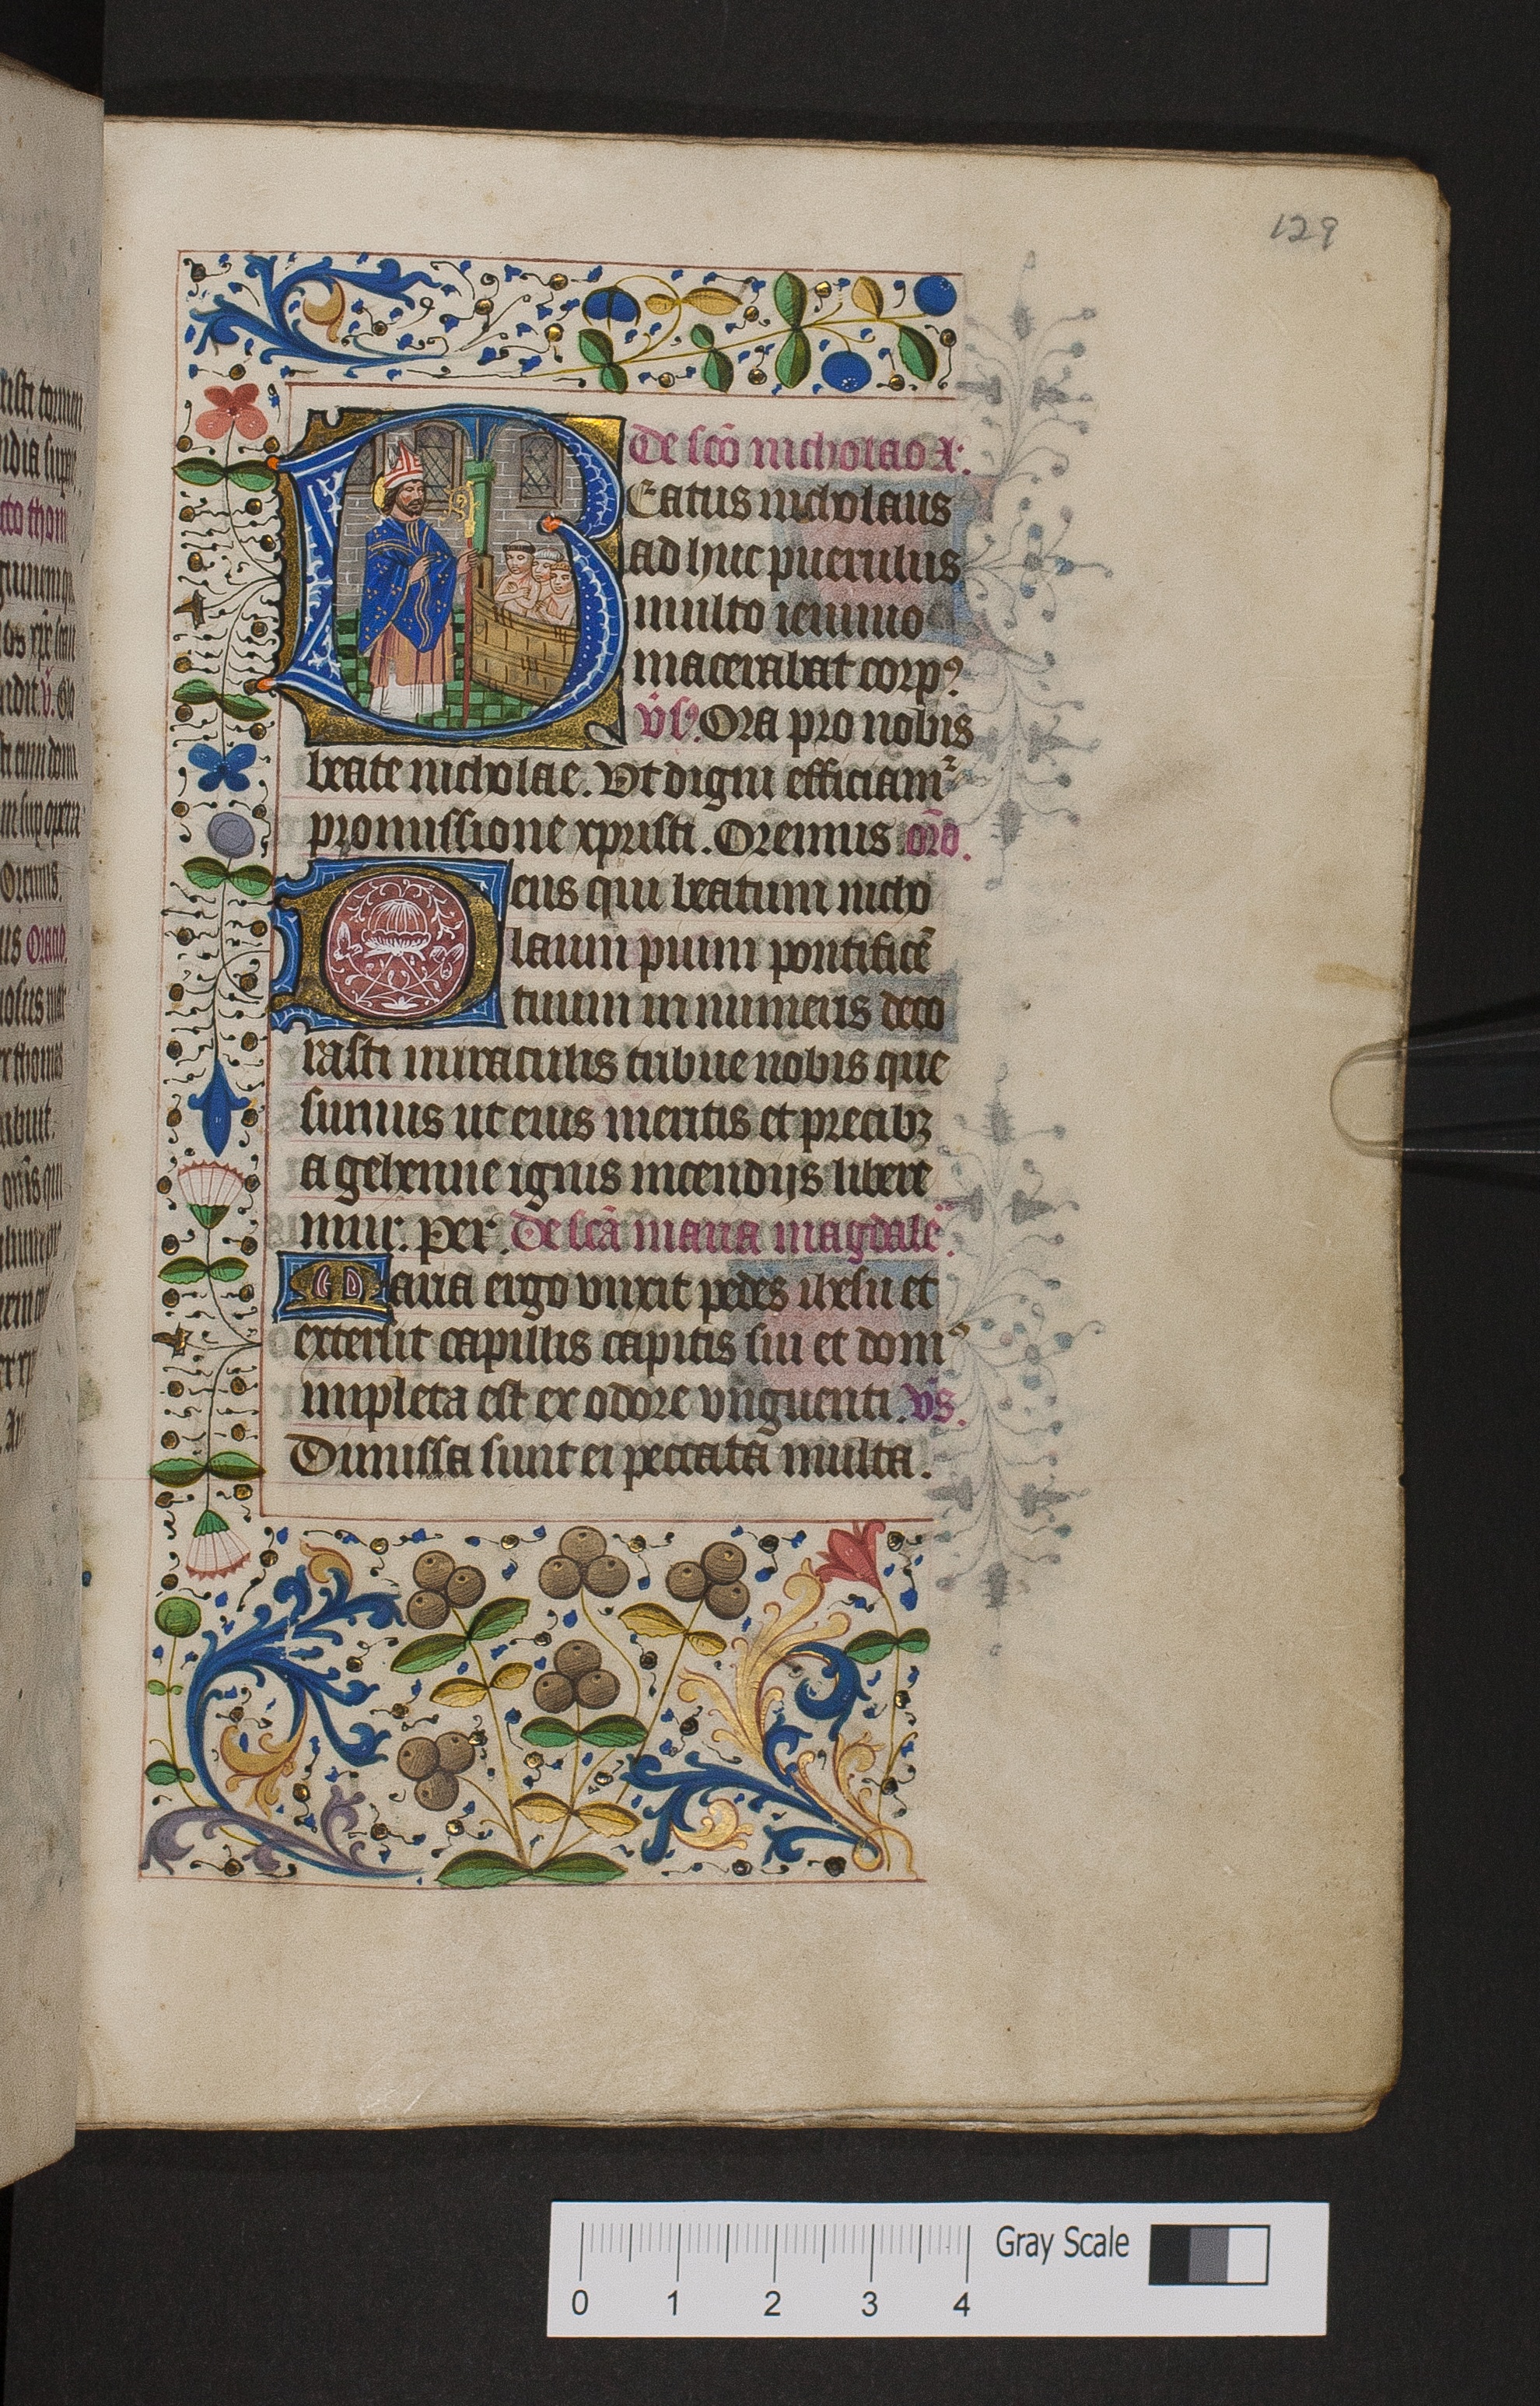 129
De scō nicholao A:
Beatus nicholaus
ad huc puerulus
multo ieiunio
macerabat corpꝰ
v̄sꝰ. Ora pro nobis
beate nicholae. Vt digni efficiamꝛ
promissione xpristi. Oremus. orō.
Deus qui beatum nicho
laum pium pontificē
tuum innumeris deco
rasti miraculis tribue nobis que
sumus ut eius meritis et precibꝫ
a gehenne ignis incendijs libere
mur. per. De scā maria magdalē.
Maria ergo vnxit pedes ihesu et
extersit capillis capitis sui et domꝰ
impleta est ex odore vnguenti. v̄s.
Dimissa sunt ei peccata multa.
Oremus.
Gray Scale
0 1 2 3 4